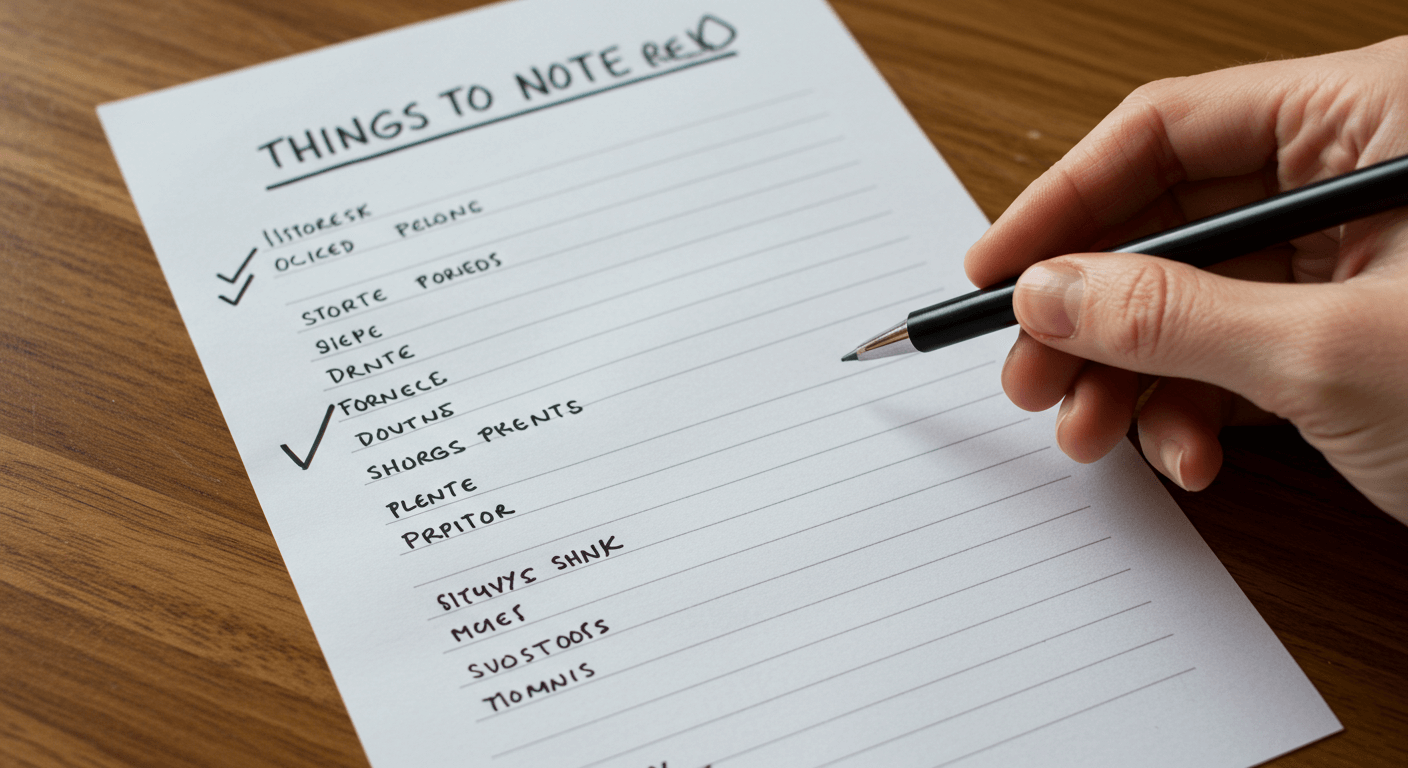 THINGS TO NOTE
OCICED PELONE
STORTE PORIEDS
SIEPE
DRNTE
FORNECE
DOUTNS
SHORGS PRENTS
PLENTE
PRPITOR
SITUVYS SHNK
MCIES
SVOSTOOFS
TIOMNIS